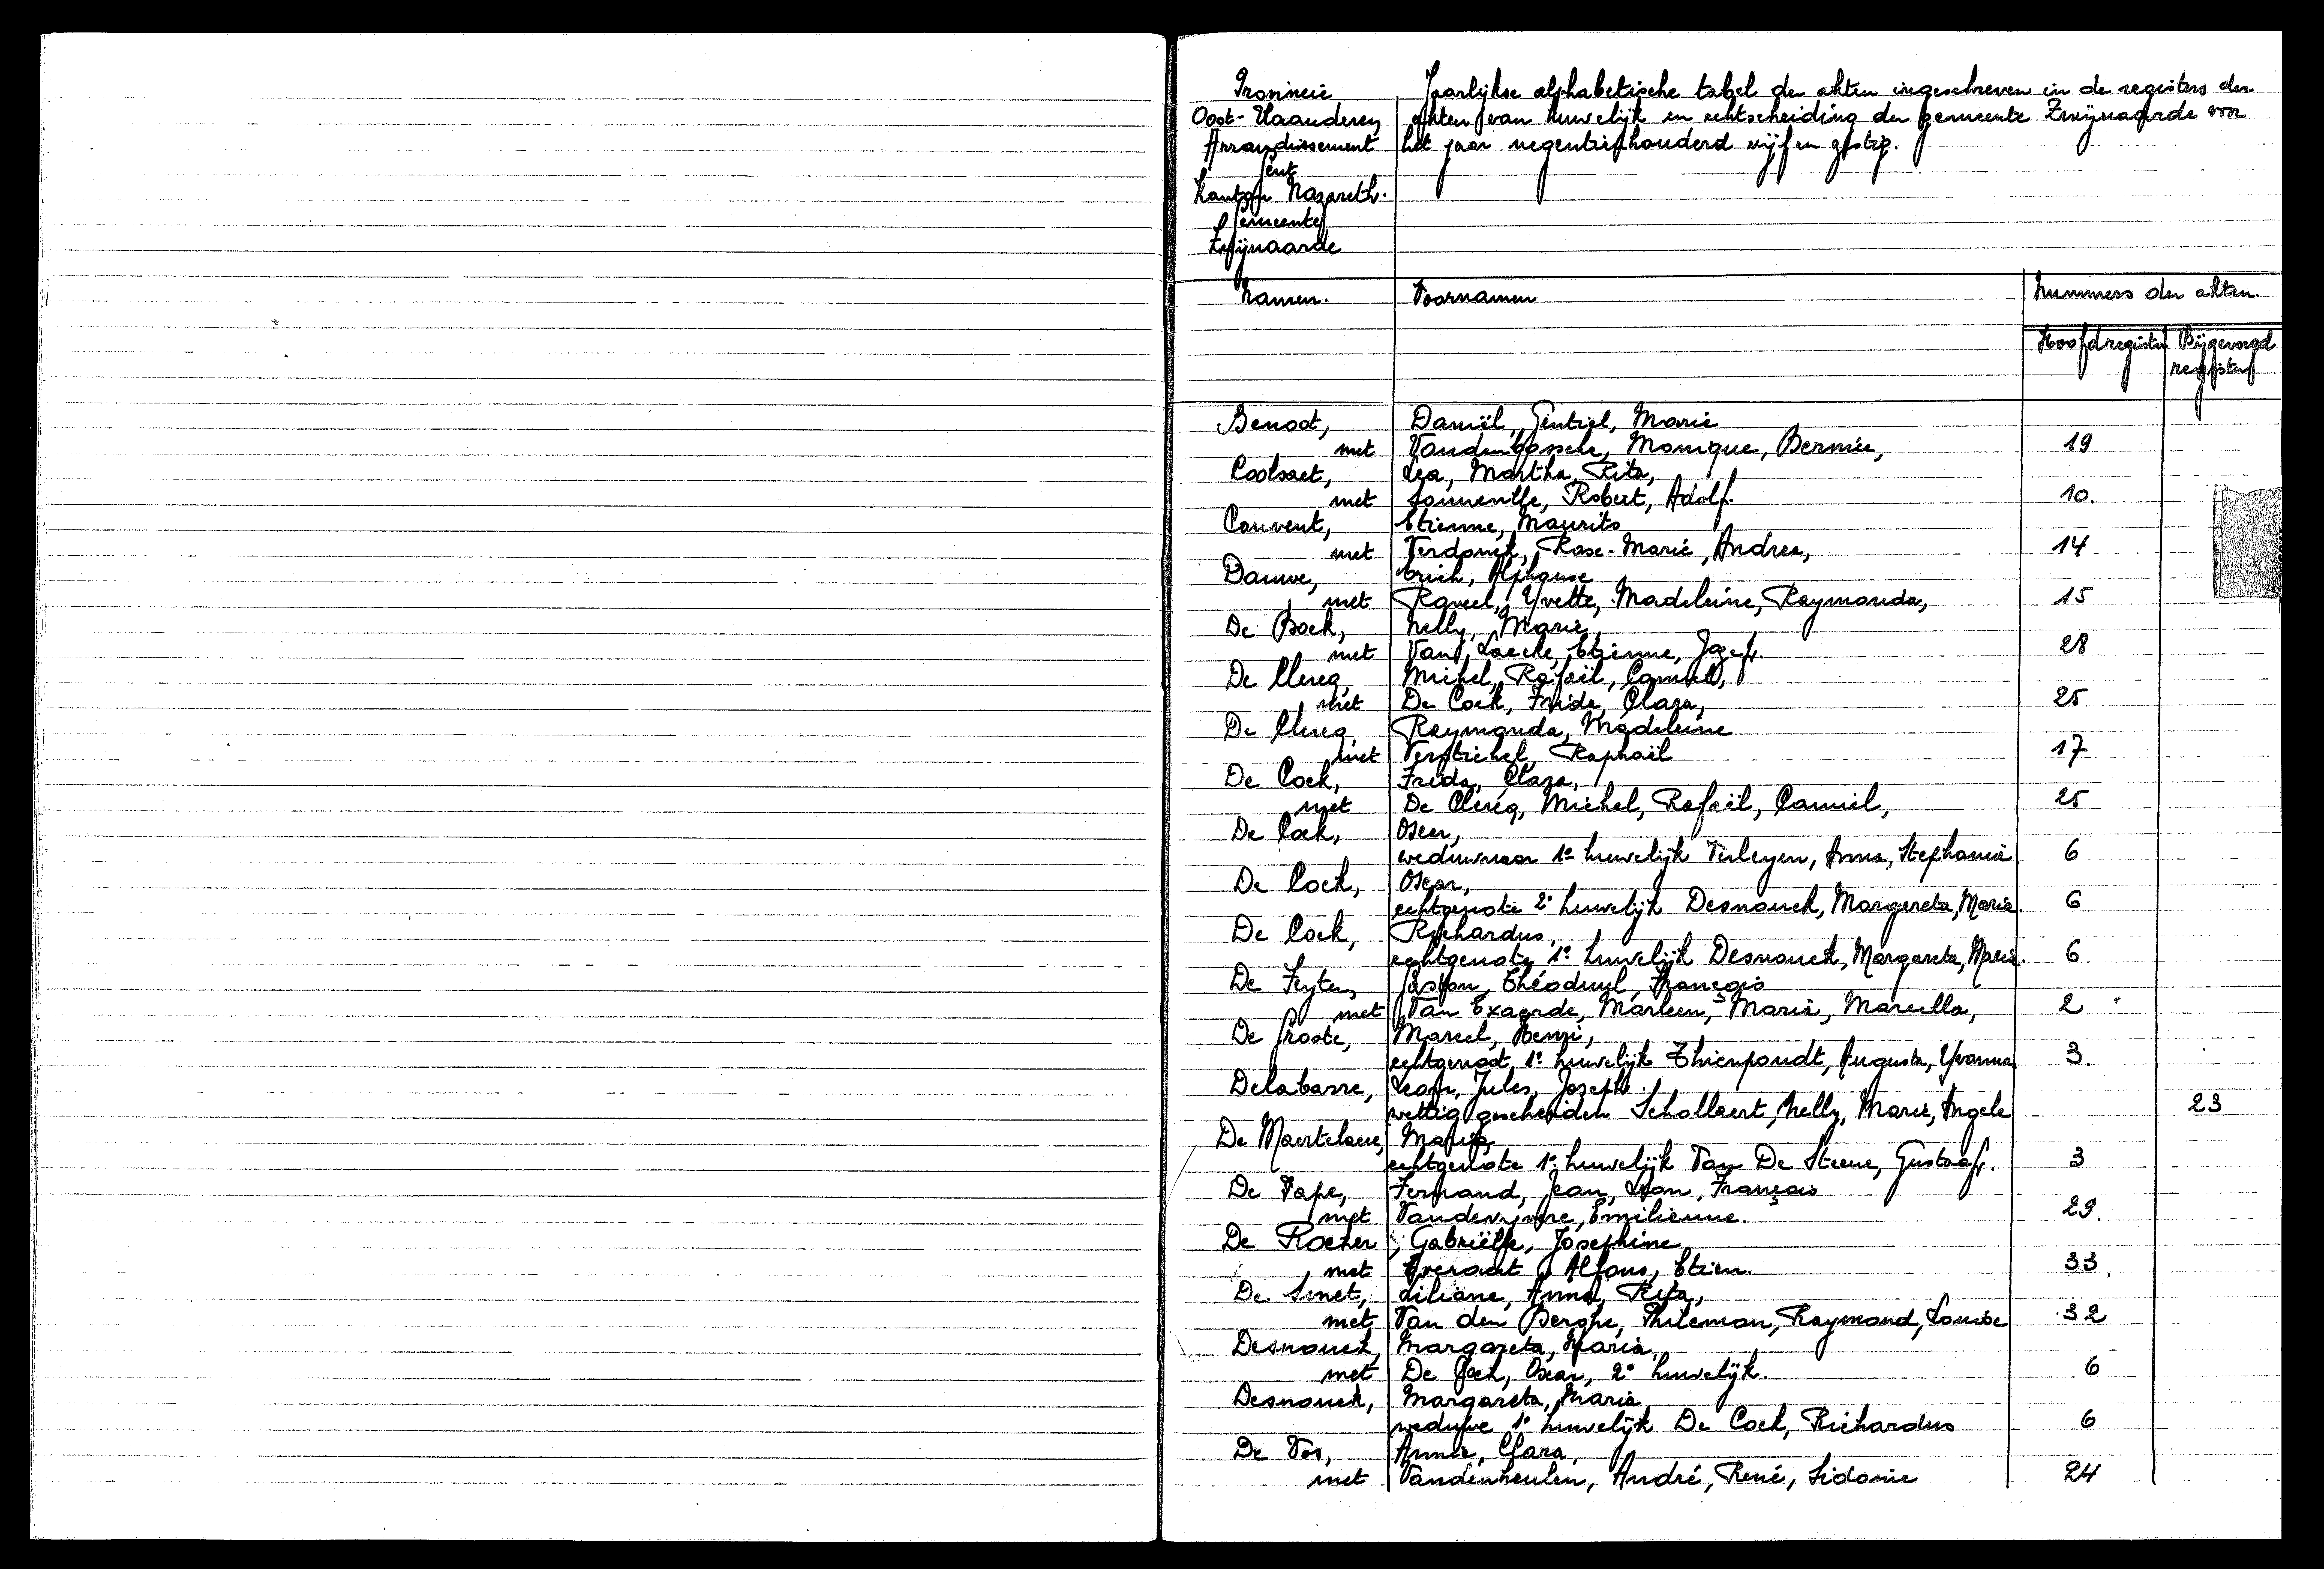 Provincie
Oost-Vlaanderen
Arrondissement
Gent
Kanton Nazareth.
Gemeente
Zwijnaarde
Jaarlijkse alphabetische tabel der akten ingeschreven in de registers der
akten van huwelijk en echtscheiding der gemeente Zwijnaarde voor
het jaar negentienhonderd vijf en zestig.
Namen. Voornamen Nummers der akten.
Hoofdregister Bijgevoegd
register
Benoot, Daniël, Gentiel, Marie
met Vandenbossche, Monique, Bernice, 19
Coolsaet, Lea, Martha, Rita,
met Robert, Adolf. 10.
Couvent, Etienne, Maurits
met Verdonck, Rose-Marie, Andrea, 14
Dauwe, Erich, Alphonse
met Raveel, Yvette, Madeleine, Raymonda, 15
De Bock, Nelly, Marie,
met Van Laecke, Etienne, Jozef. 28
De Clercq, Michel, Rafaël, Camiel,
met De Cock, Frida, Clara, 25
De Clercq, Raymonda, Madeleine
met Verstichel, Raphaël 17
De Cock, Frida, Clara,
met De Clercq, Michel, Rafaël, Camiel, 25
De Cock, Oscar,
weduwnaar 1e huwelijk Anna, Stephanie 6
De Cock, Oscar,
echtgenote 2e huwelijk Desnouck, Margareta, Maria. 6
De Cock, Richardus,
echtgenote 1e huwelijk Desnouck, Margareta, Maria. 6
De Feyter, Gaston, Théoduul, François
met Van Exaerde, Marleen, Maria, Marcella, 2
De Groote, Marcel, Henri,
echtgenoot 1e huwelijk Thienpondt, Augusta, Yvonna 3.
Delabarre, Leon, Jules, Joseph.
wettig gescheiden Schollaert, Nelly, Marie, Angele 23
De Maertelaere, Maria,
echtgenote 1e huwelijk Van De Steene, Gustaaf. 3
De Pape, Fernand, Jean, Leon, François
met Vandevyvere, Emilienne. 29.
De Roeker, Gabriëlle, Josephine
met Everaert, Alfons, Etien. 33.
De Smet, Liliane, Anna, Rita,
met Van den Berghe, Philemon, Raymond, Louise 32
Desnouck, Margareta, Maria,
met De Cock, Oscar, 2e huwelijk. 6
Desnouck, Margareta, Maria
weduwe 1e huwelijk De Cock, Richardus 6
De Vos, Annie, Clara,
met Vandenheulen, André, René, Sidonie 24